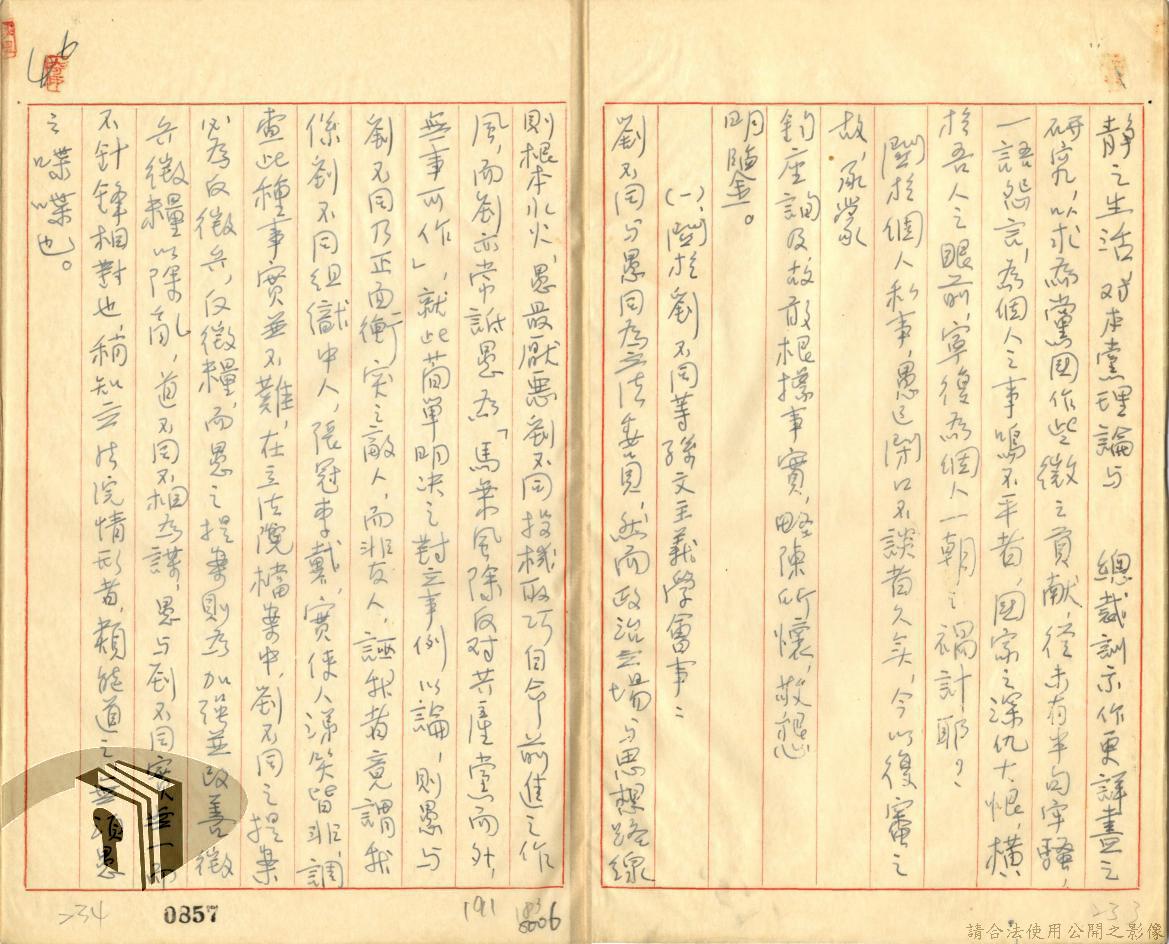 靜之生活对本黨理論与　總裁訓示作更詳盡之
研究，以求為黨國作些微之貢献，從未有半句牢騷，
一語怨言，為個人之事鳴不平者，國家之深仇大恨，橫
於吾人之眼前，寧復為個人一朝之禍計耶？
關於個人私事，愚已閉口不談者久矣，今以復審之
故，承蒙
鈞座詢及故敢根據事實，略陳所懷，敬懇
明鑒。
(一)、關於劉不同等孫文主義學會事：
劉不同与愚同為立法委員，然而政治立場与思想路線
則根本水火，愚最厭惡劉不同投機取巧自命前進之作
風，而劉亦常詆愚為「馬乘風除反对共產黨而外，
無事可作」，就此簡單明決之對立事例以論，則愚与
劉不同乃正面衝突之敵人，而非友人，誣我者竟謂我
係劉不同組織中人，張冠李戴，實使人涕笑皆非，調
查此種事實並不難，在立法院檔案中，劉不同之提案
必為反徵兵，反徵糧，而愚之提案則為加強並改善徵
兵徵糧以除亂，道不同不相為謀，愚与劉不同實無一
不針鋒相對也，稍知立法院情形者，類能道之無須愚
之喋喋也。
46
234
0857
191
233
請合法使用公開之影像